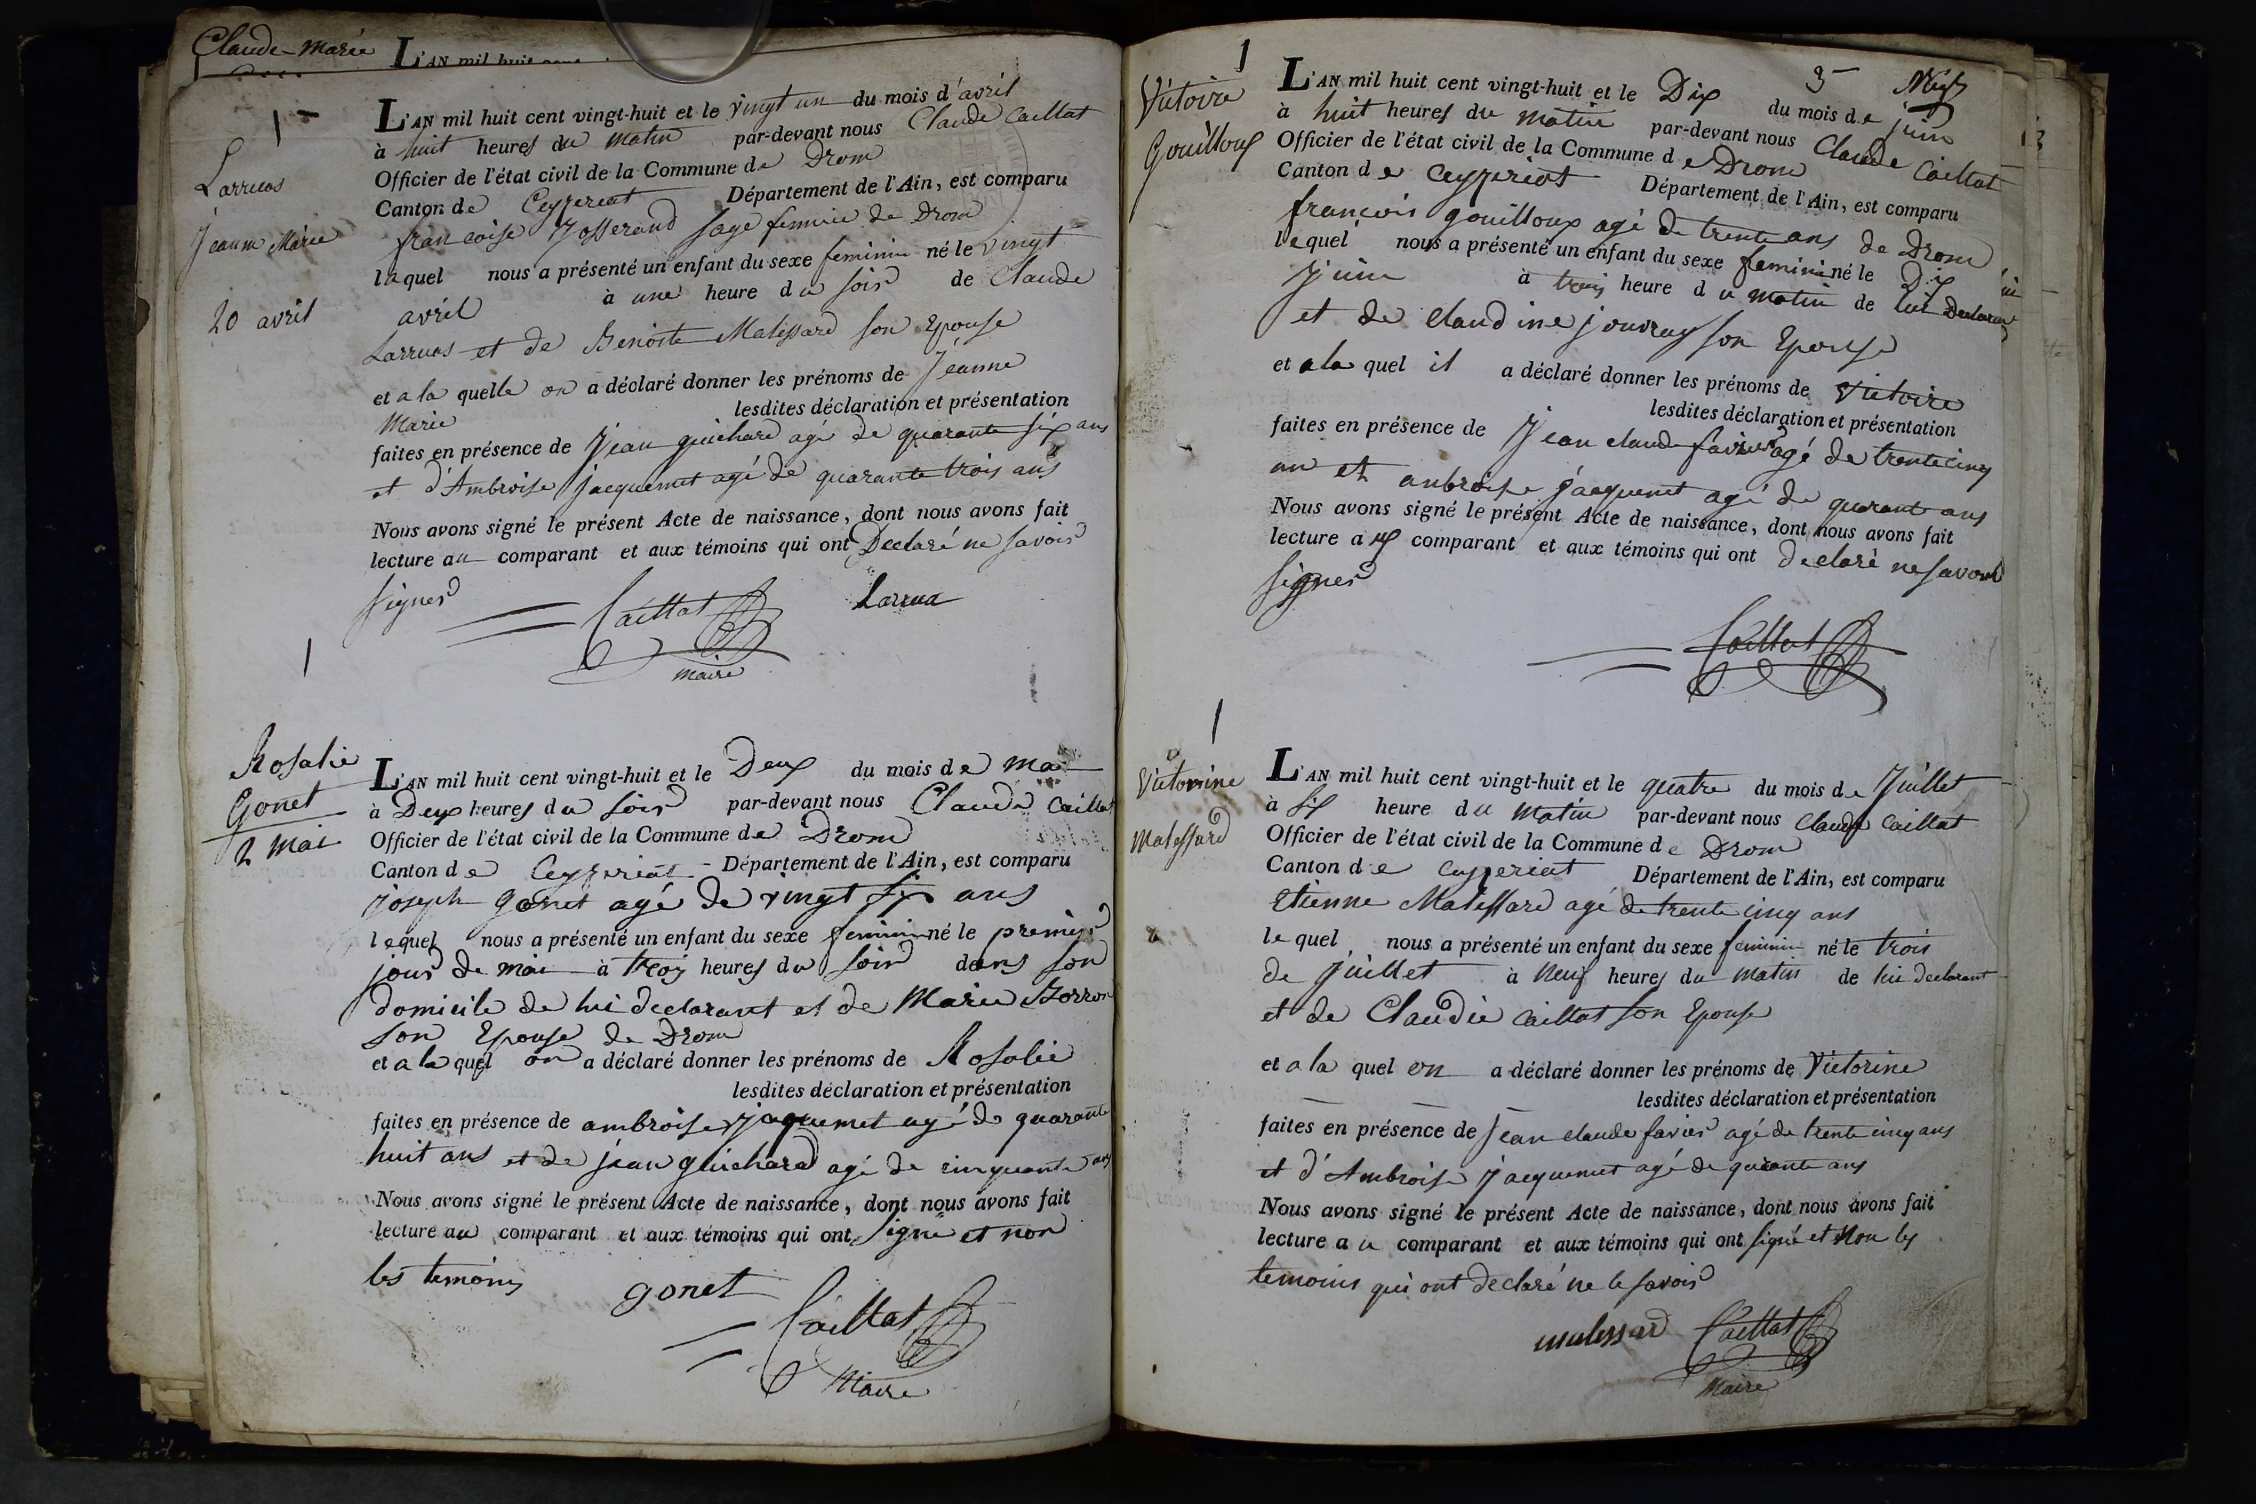 Claude Marie
L'AN mil huit cent
1
Larruas
Jeanne Marie
20 avril
L'AN mil huit cent vingt-huit et le vingt un du mois d'avril
à huit heures du matin par-devant nous Claude Caillat
Officier de l'état civil de la Commune de Drom
Canton de Ceyzeriat Département de l'Ain, est comparu
francoise Josserand sage femme de Drom
laquel nous a présenté un enfant du sexe feminin né le vingt
avril à une heure du soir de Claude
Larruas et de Benoite Malessard son Epouse
et a la quelle on a déclaré donner les prénoms de Jeanne
Marie lesdites déclaration et présentation
faites en présence de Jean guichard agé de quarante six ans
et d'Ambroise jacquemet agé de quarante trois ans
Nous avons signé le présent Acte de naissance, dont nous avons fait
lecture au comparant et aux témoins qui ont Declaré ne savoir
signer
Caillat Larrua
maire
1
Rosalie
Gonet
2 mai
L'AN mil huit cent vingt-huit et le Deux du mois de mai
à Deux heures du soir par-devant nous Claude Caillat
Officier de l'état civil de la Commune de Drom
Canton de Ceyzeriat Département de l'Ain, est comparu
joseph gonet agé de vingt six ans
lequel nous a présenté un enfant du sexe feminin né le premier
jour de mai à trois heures du soir dans son
domicile de lui declarant et de Marie Borron
son Epouse de Drom
et a la quel on a déclaré donner les prénoms de Rosalie
lesdites déclaration et présentation
faites en présence de ambroise jaquemet agé de quarante
huit ans et de jean guichard agé de cinquante ans
Nous avons signé le présent Acte de naissance, dont nous avons fait
lecture au comparant et aux témoins qui ont signé et non
les temoins
gonet Caillat
Maire
1
3
Victoire
Gouilloux
L'AN mil huit cent vingt-huit et le Dix du mois de juin
à huit heures du matin par-devant nous Claude Caillat
Officier de l'état civil de la Commune de Drom
Canton de Ceyzeriat Département de l'Ain, est comparu
francois gouilloux agé de trente ans de Drom
lequel nous a présenté un enfant du sexe feminin né le Dix
juin à trois heure du matin de lui Declarant
et de Claudine jouvray son Epouse
et a la quel il a déclaré donner les prénoms de Victoire
lesdites déclaration et présentation
faites en présence de Jean claude favier agé de trente cinq
an et anbroise jacquemet agé de quarante ans
Nous avons signé le présent Acte de naissance, dont nous avons fait
lecture aux comparant et aux témoins qui ont declaré ne savoir
signer
Caillat
1
Victorine
Malessard
L'AN mil huit cent vingt-huit et le quatre du mois de Juillet
à six heure du matin par-devant nous Claude Caillat
Officier de l'état civil de la Commune de Drom
Canton de Ceyzeriat Département de l'Ain, est comparu
Etienne Malessard agé de trente cinq ans
lequel nous a présenté un enfant du sexe feminin né le trois
de juillet à neuf heures du matin de lui declarant
et de Claudie Caillat son Epouse
et a la quel on a déclaré donner les prénoms de Victorine
lesdites déclaration et présentation
faites en présence de Jean claude favier agé de trente cinq ans
et d'Ambroise jacquemet agé de quarante ans
Nous avons signé le présent Acte de naissance, dont nous avons fait
lecture au comparant et aux témoins qui ont signé et non les
temoins qui ont declaré ne le savoir
malessard Caillat
Maire